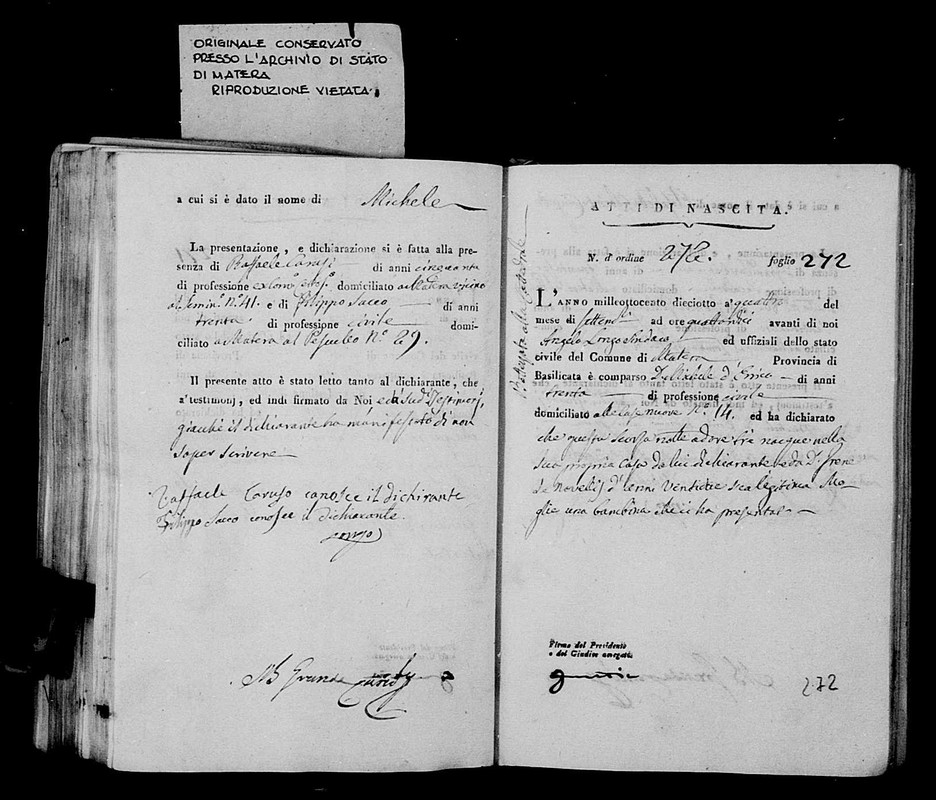 ORIGINALE CONSERVATO
PRESSO L'ARCHIVIO DI STATO
DI MATERA
RIPRODUZIONE VIETATA.
a cui si è dato il nome di Michele
La presentazione, e dichiarazione si è fatta alla pre-
senza di Raffaele Caruso di anni cinquanta
di professione domiciliato a Matera vicino
al N.º 41. e di Filippo Sacco di anni
trenta di professione civile domi-
ciliato a Matera al N.º 29.
Il presente atto è stato letto tanto al dichiarante, che
a' testimonj, ed indi firmato da Noi e da Sud.i Testimonj,
giacchè il dichiarante ha manifestato di non
saper scrivere
Raffaele Caruso conosce il dichirante
Filippo Sacco conosce il dichiarante
Longo
ATTI DI NASCITA.
N. d'ordine 272. foglio 272
L'ANNO milleottocento dieciotto a' quattro del
mese di Settembre ad ore quattordici avanti di noi
Angelo Longo Sindaco ed uffiziali dello stato
civile del Comune di Matera Provincia di
Basilicata è comparso d'Errico di anni
trenta di professione civile
domiciliato alle case nuove N.º 14. ed ha dichiarato
che questa scorsa notte ad ore tre nacque nella
sua propria Casa da lui dichiarante e da D. Irene
de Novellis d'anni ventidue sua legitima Mo-
glie una bambina che ci ha presentat
Firma del Presidente
o del Giudice delegato
272